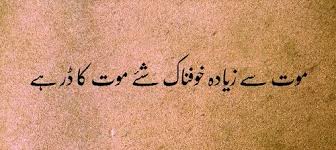 موت سے زیادہ خوفناک شئے موت کا ڈر ہے